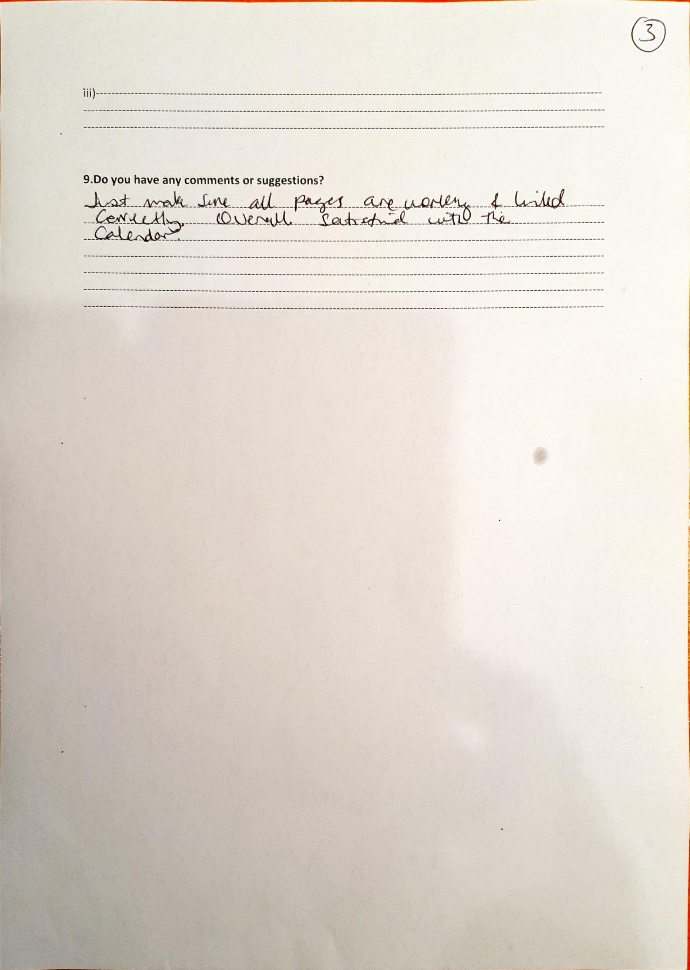 3
iii)
9.Do you have any comments or suggestions?
Just make sure all pages are working & linked
correctly. Overall satisfied with the
Calendar.